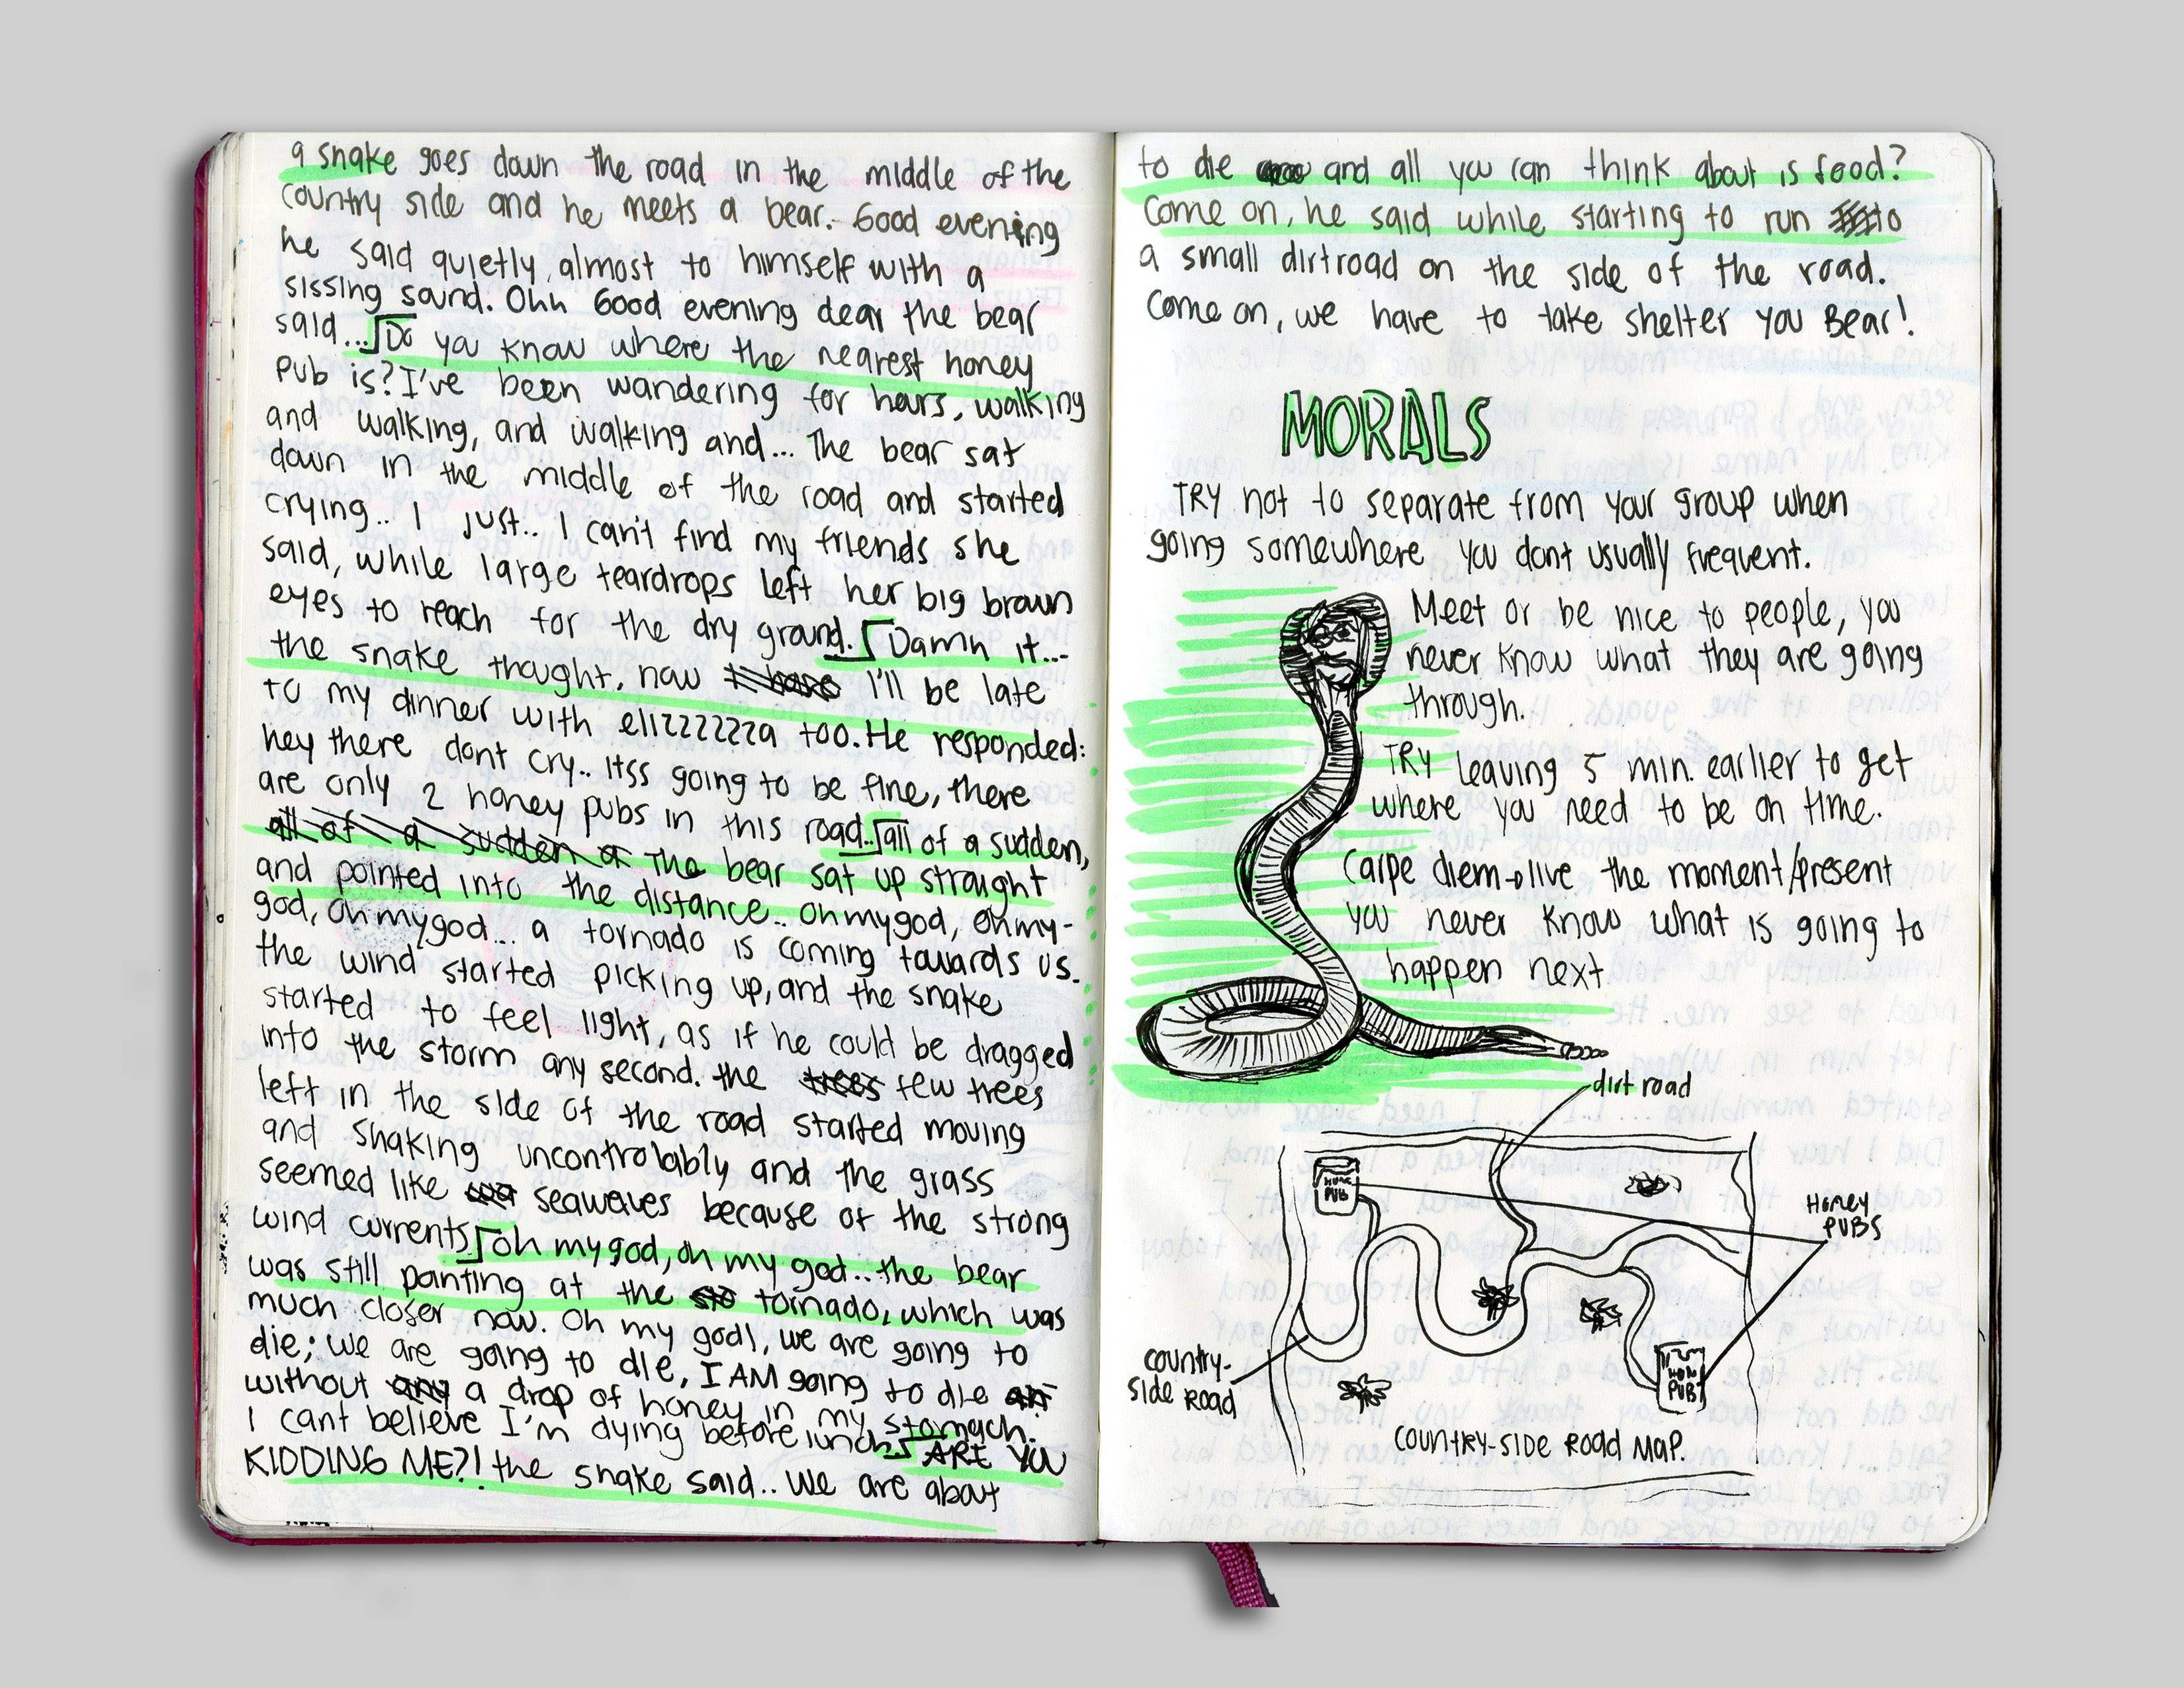 a snake goes down the road in the middle of the
country side and he meets a bear.. Good evening
he said quietly, almost to himself with a
sissing sound. Ohh Good evening dear the bear
said... Do you know where the nearest honey
pub is? I've been wandering for hours, walking
and walking, and walking and... The bear sat
down in the middle of the road and started
crying.. I just.. I can't find my friends she
said, while large teardrops left her big brown
eyes to reach for the dry ground. Damn it...
the snake thought, now I'll be late
to my dinner with elizzzzzza too. He responded:
hey there dont cry.. itss going to be fine, there
are only 2 honey pubs in this road.. all of a sudden,
all of a sudden a The bear sat up straight
and pointed into the distance.. oh my god, oh my-
god, oh my god... a tornado is coming towards us.
the wind started picking up, and the snake
started to feel light, as if he could be dragged
into the storm any second. the trees few trees
left in the side of the road started moving
and shaking uncontrolably and the grass
seemed like seawaves because of the strong
wind currents. oh my god, oh my god.. the bear
was still panting at the tornado, which was
much closer now. Oh my god!, we are going to
die; we are going to die, I AM going to die
without any a drop of honey in my stomach.
I cant believe I'm dying before lunch. ARE YOU
KIDDING ME?! the snake said.. We are about
to die and all you can think about is food?
Come on, he said while starting to run to
a small dirtroad on the side of the road.
Come on, we have to take shelter you Bear!
MORALS
TRY not to separate from your group when
going somewhere you dont usually frequent.
Meet or be nice to people, you
never know what they are going
through.
TRY Leaving 5 min. earlier to get
where you need to be on time.
Carpe diem→live the moment/present
you never know what is going to
happen next
dirt road
PUB
Honey
PUBS
HONY
PUB
country-
side road
COUNTRY-SIDE ROAD MAP.